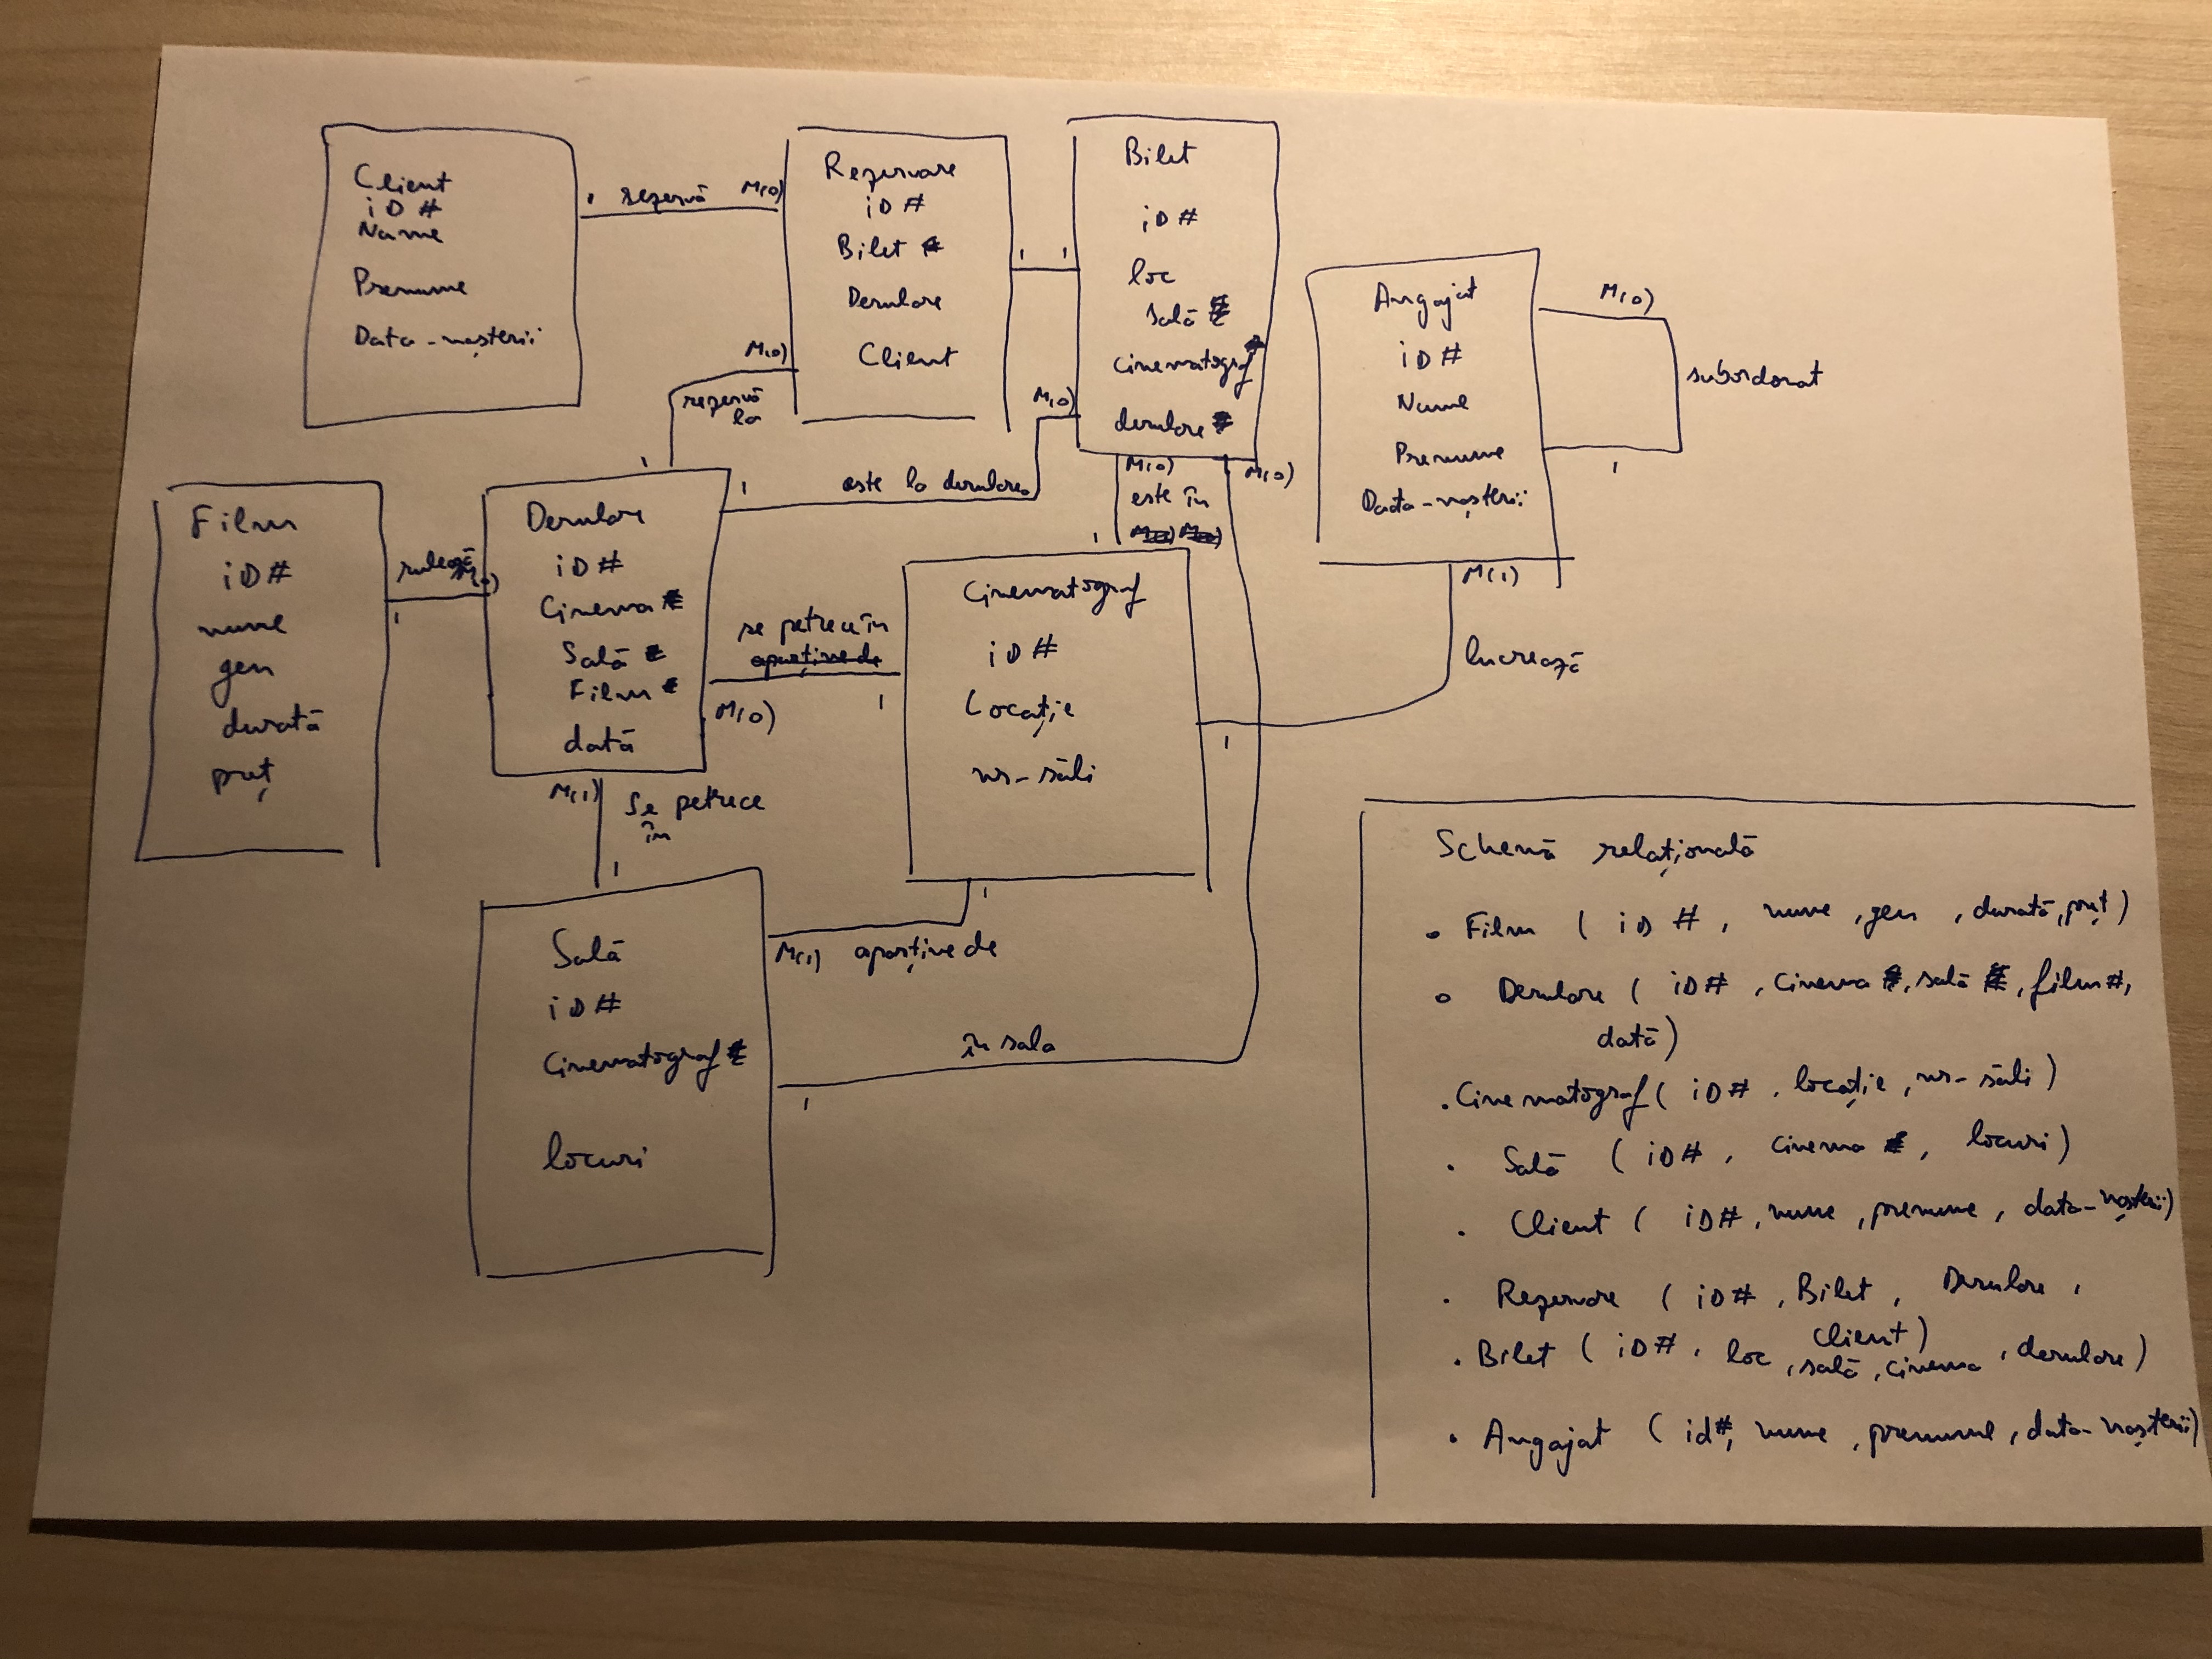 Client
iD #
Nume
Prenume
Data-nașterii
1 rezervă M(0)
Rezervare
iD #
Bilet
Derulare
Client
1 1
Bilet
iD #
loc
Sală
cinematograf
derulare
Angajat
iD #
Nume
Prenume
Data-nașterii
M(0)
subordonat
1
M(0)
rezervă
la
1
M(0)
1 este la derulare
M(0)
este în
1
M(0)
Film
iD #
nume
gen
durată
preț
rulează M(0)
1
Derulare
iD #
Cinema
Sală
Film
dată
se petrece în
aparține de
M(0) 1
Cinematograf
iD #
Locație
nr-săli
M(1)
lucrează
1
M(1) Se petrece
în
1
Sală
iD #
Cinematograf
locuri
1
M(1) aparține de
în sala
1
Schemă relațională
• Film ( iD #, nume, gen, durată, preț)
• Derulare ( iD #, Cinema, sală, film #,
dată)
• Cinematograf ( iD #, locație, nr-săli)
• Sală ( iD #, cinema, locuri)
• Client ( iD #, nume, prenume, data-nașterii)
• Rezervare ( iD #, Bilet, Derulare,
Client)
• Bilet ( iD #, loc, sală, cinema, derulare)
• Angajat ( id #, nume, prenume, data-nașterii)